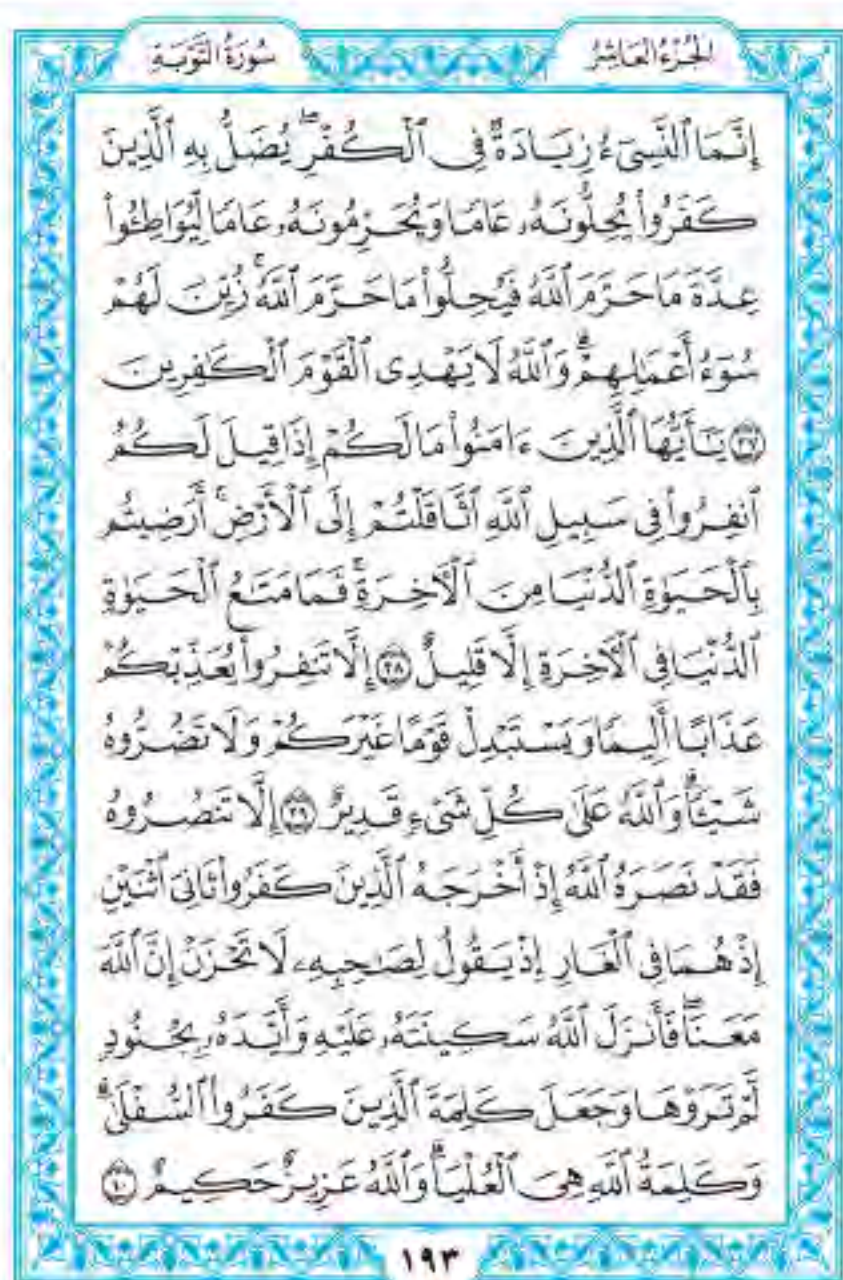 الجُزْءُ العَاشِرُ
سُورَةُ التَّوْبَةِ
إِنَّمَا ٱلنَّسِىٓءُ زِيَادَةٌ فِى ٱلْكُفْرِ ۖ يُضَلُّ بِهِ ٱلَّذِينَ
كَفَرُوا۟ يُحِلُّونَهُۥ عَامًا وَيُحَرِّمُونَهُۥ عَامًا لِّيُوَاطِـُٔوا۟
عِدَّةَ مَا حَرَّمَ ٱللَّهُ فَيُحِلُّوا۟ مَا حَرَّمَ ٱللَّهُ ۚ زُيِّنَ لَهُمْ
سُوٓءُ أَعْمَٰلِهِمْ ۗ وَٱللَّهُ لَا يَهْدِى ٱلْقَوْمَ ٱلْكَٰفِرِينَ
٣٧ يَٰٓأَيُّهَا ٱلَّذِينَ ءَامَنُوا۟ مَا لَكُمْ إِذَا قِيلَ لَكُمُ
ٱنفِرُوا۟ فِى سَبِيلِ ٱللَّهِ ٱثَّاقَلْتُمْ إِلَى ٱلْأَرْضِ ۚ أَرَضِيتُم
بِٱلْحَيَوٰةِ ٱلدُّنْيَا مِنَ ٱلْءَاخِرَةِ ۚ فَمَا مَتَٰعُ ٱلْحَيَوٰةِ
ٱلدُّنْيَا فِى ٱلْءَاخِرَةِ إِلَّا قَلِيلٌ ٣٨ إِلَّا تَنفِرُوا۟ يُعَذِّبْكُمْ
عَذَابًا أَلِيمًا وَيَسْتَبْدِلْ قَوْمًا غَيْرَكُمْ وَلَا تَضُرُّوهُ
شَيْـًٔا ۗ وَٱللَّهُ عَلَىٰ كُلِّ شَىْءٍ قَدِيرٌ ٣٩ إِلَّا تَنصُرُوهُ
فَقَدْ نَصَرَهُ ٱللَّهُ إِذْ أَخْرَجَهُ ٱلَّذِينَ كَفَرُوا۟ ثَانِىَ ٱثْنَيْنِ
إِذْ هُمَا فِى ٱلْغَارِ إِذْ يَقُولُ لِصَٰحِبِهِۦ لَا تَحْزَنْ إِنَّ ٱللَّهَ
مَعَنَا ۖ فَأَنزَلَ ٱللَّهُ سَكِينَتَهُۥ عَلَيْهِ وَأَيَّدَهُۥ بِجُنُودٍ
لَّمْ تَرَوْهَا وَجَعَلَ كَلِمَةَ ٱلَّذِينَ كَفَرُوا۟ ٱلسُّفْلَىٰ ۗ
وَكَلِمَةُ ٱللَّهِ هِىَ ٱلْعُلْيَا ۗ وَٱللَّهُ عَزِيزٌ حَكِيمٌ ٤٠
١٩٣